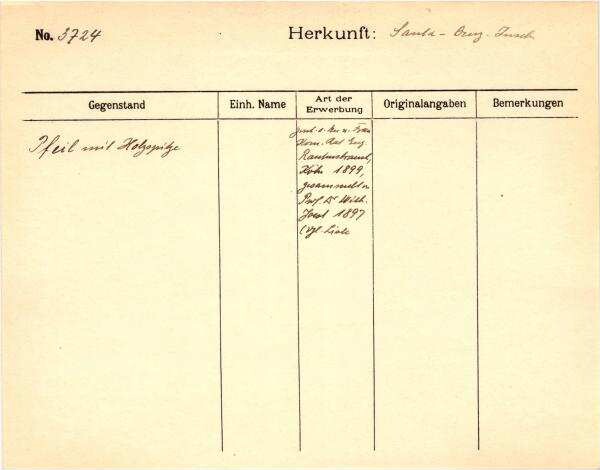 No. 3724 Herkunft: Santa-Cruz-Inseln
Gegenstand Einh. Name Art der Erwerbung Originalangaben Bemerkungen
Pfeil mit Holzspitze
Gesch. v. Hrn u. Frau
Kom. Rat Eug
Rautenstrauch,
Köln 1899,
gesammelt v.
Prof. Dr Wilh.
Joest 1897
(vgl. Liste